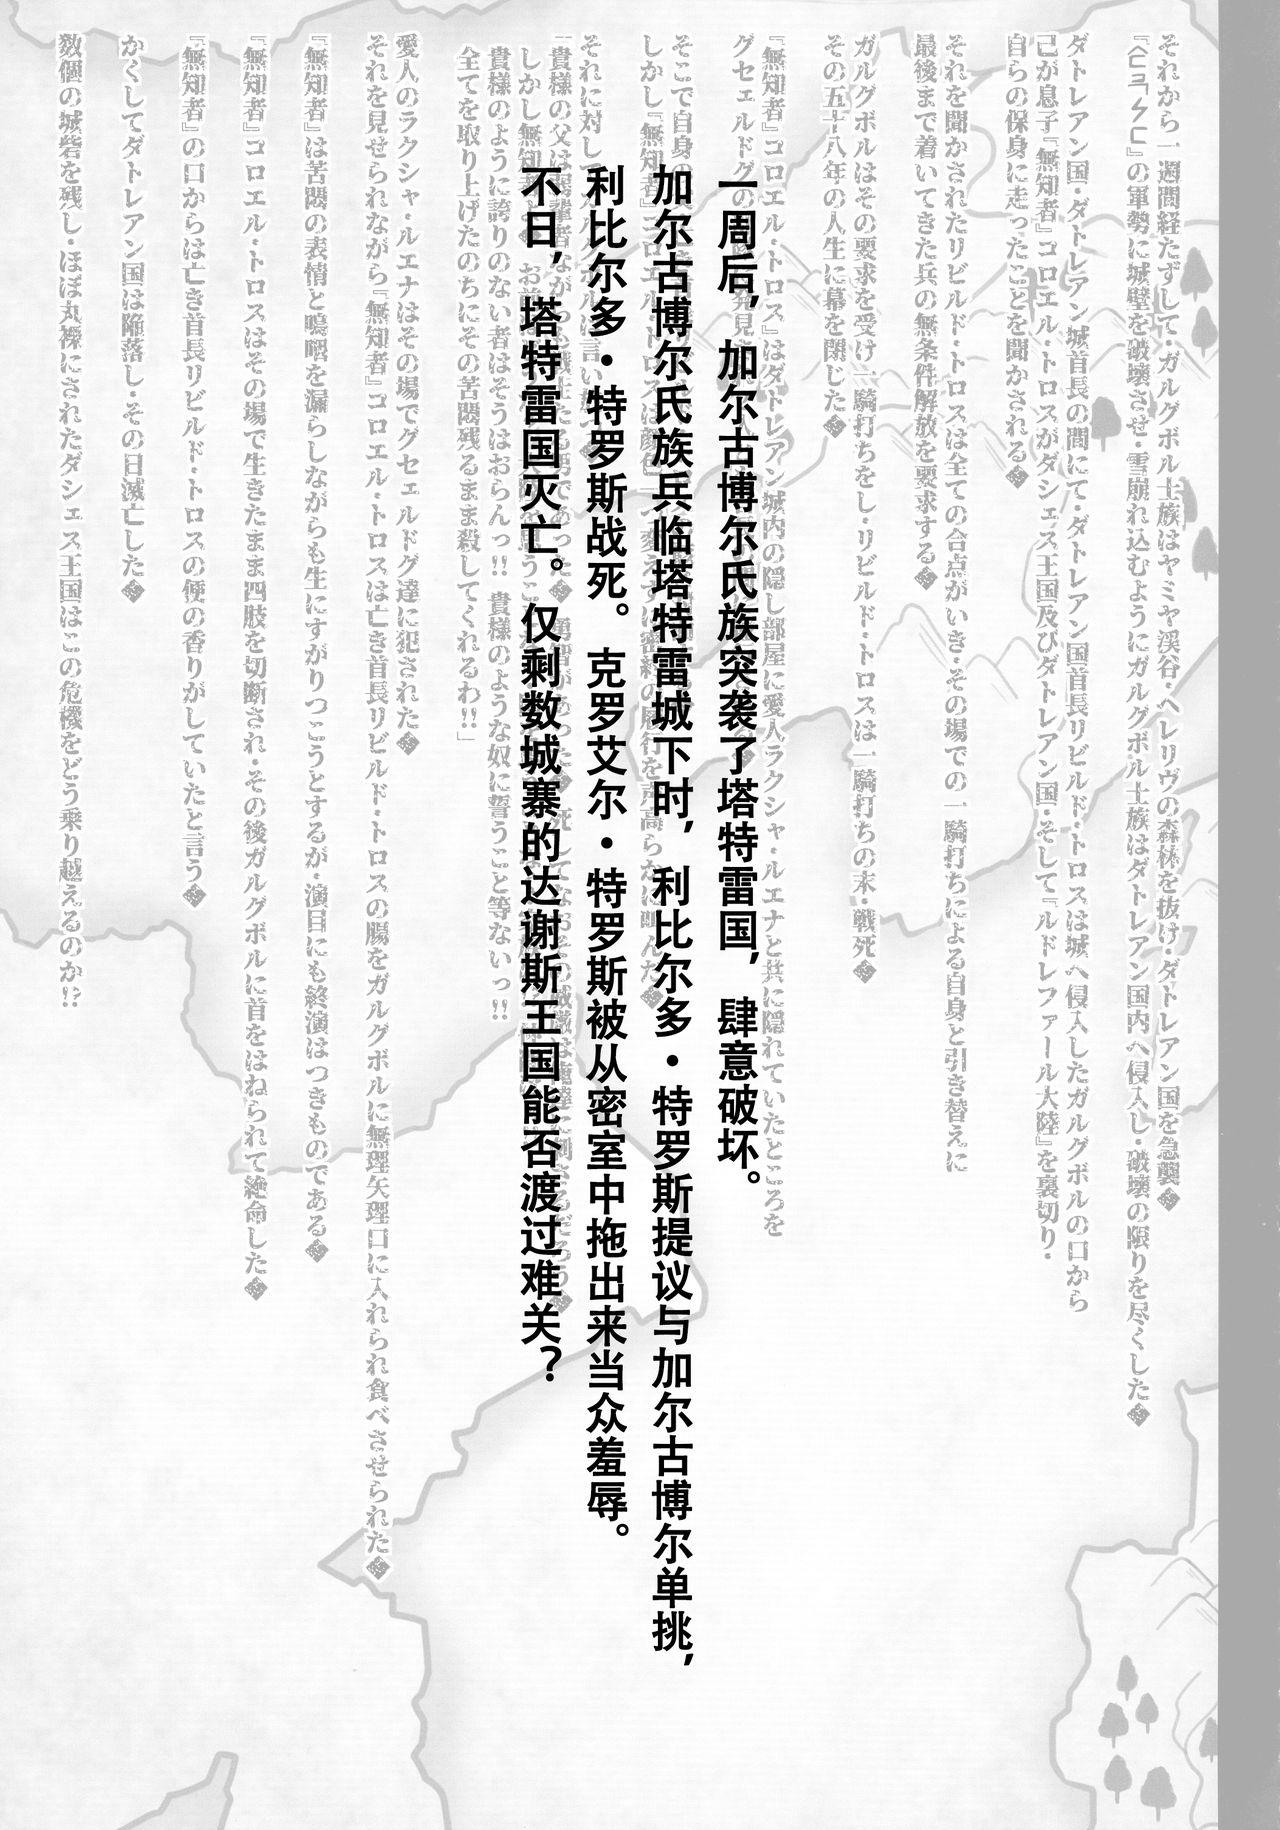 それから一週間経たずして・ガルグボル士族はヤミヤ渓谷・ヘレリヴの森林を抜け・ダトレアン国を急襲
の軍勢に城壁を破壊させ・雪崩れ込むようにガルグボル士族はダトレアン国内へ侵入し・破壊の限りを尽くした
ダトレアン国・ダトレアン城首長の間にて・ダトレアン国首長リビルド・トロスは城へ侵入したガルグボルの口から
己が息子『無知者』コロエル・トロスがダシェス王国及びダトレアン国・そして『ルドレファール大陸』を裏切り・
自らの保身に走ったことを聞かされる
それを聞かされたリビルド・トロスは全ての合点がいき・その場での一騎打ちによる自身と引き替えに
最後まで着いてきた兵の無条件解放を要求する
ガルグボルはその要求を受け一騎打ちをし・リビルド・トロスは一騎打ちの末・戦死
その五十八年の人生に幕を閉じた
『無知者』コロエル・トロス』はダトレアン城内の隠し部屋に愛人ラクシャ・ルエナと共に隠れていたところを
グセェルドグの
一周后，加尔古博尔氏族突袭了塔特雷国，肆意破坏。
そこで自身の
しかし『無知者』コロエル・トロスは顔色
加尔古博尔氏族兵临塔特雷城下时，利比尔多・特罗斯提议与加尔古博尔单挑，
それに対し
利比尔多・特罗斯战死。克罗艾尔・特罗斯被从密室中拖出来当众羞辱。
「貴様の父は
しかし無知者よ
不日，塔特雷国灭亡。仅剩数城寨的达谢斯王国能否渡过难关？
貴様のように誇りのない者はそうはおらんっ!! 貴様のような奴に誓うこと等ないっ!!
全てを取り上げたのちにその苦悶残るまま殺してくれるわ!!」
愛人のラクシャ・ルエナはその場でグセェルドグ達に犯された
それを見せられながら『無知者』コロエル・トロスは亡き首長リビルド・トロスの腸をガルグボルに無理矢理口に入れられ食べさせられた
『無知者』は苦悶の表情と嗚咽を漏らしながらも生にすがりつこうとするが・演目にも終演はつきものである
『無知者』コロエル・トロスはその場で生きたまま四肢を切断され・その後ガルグボルに首をはねられて絶命した
『無知者』の口からは亡き首長リビルド・トロスの便の香りがしていたと言う
かくしてダトレアン国は陥落し・その日滅亡した
数個の城砦を残し・ほぼ丸裸にされたダシェス王国はこの危機をどう乗り越えるのか!?